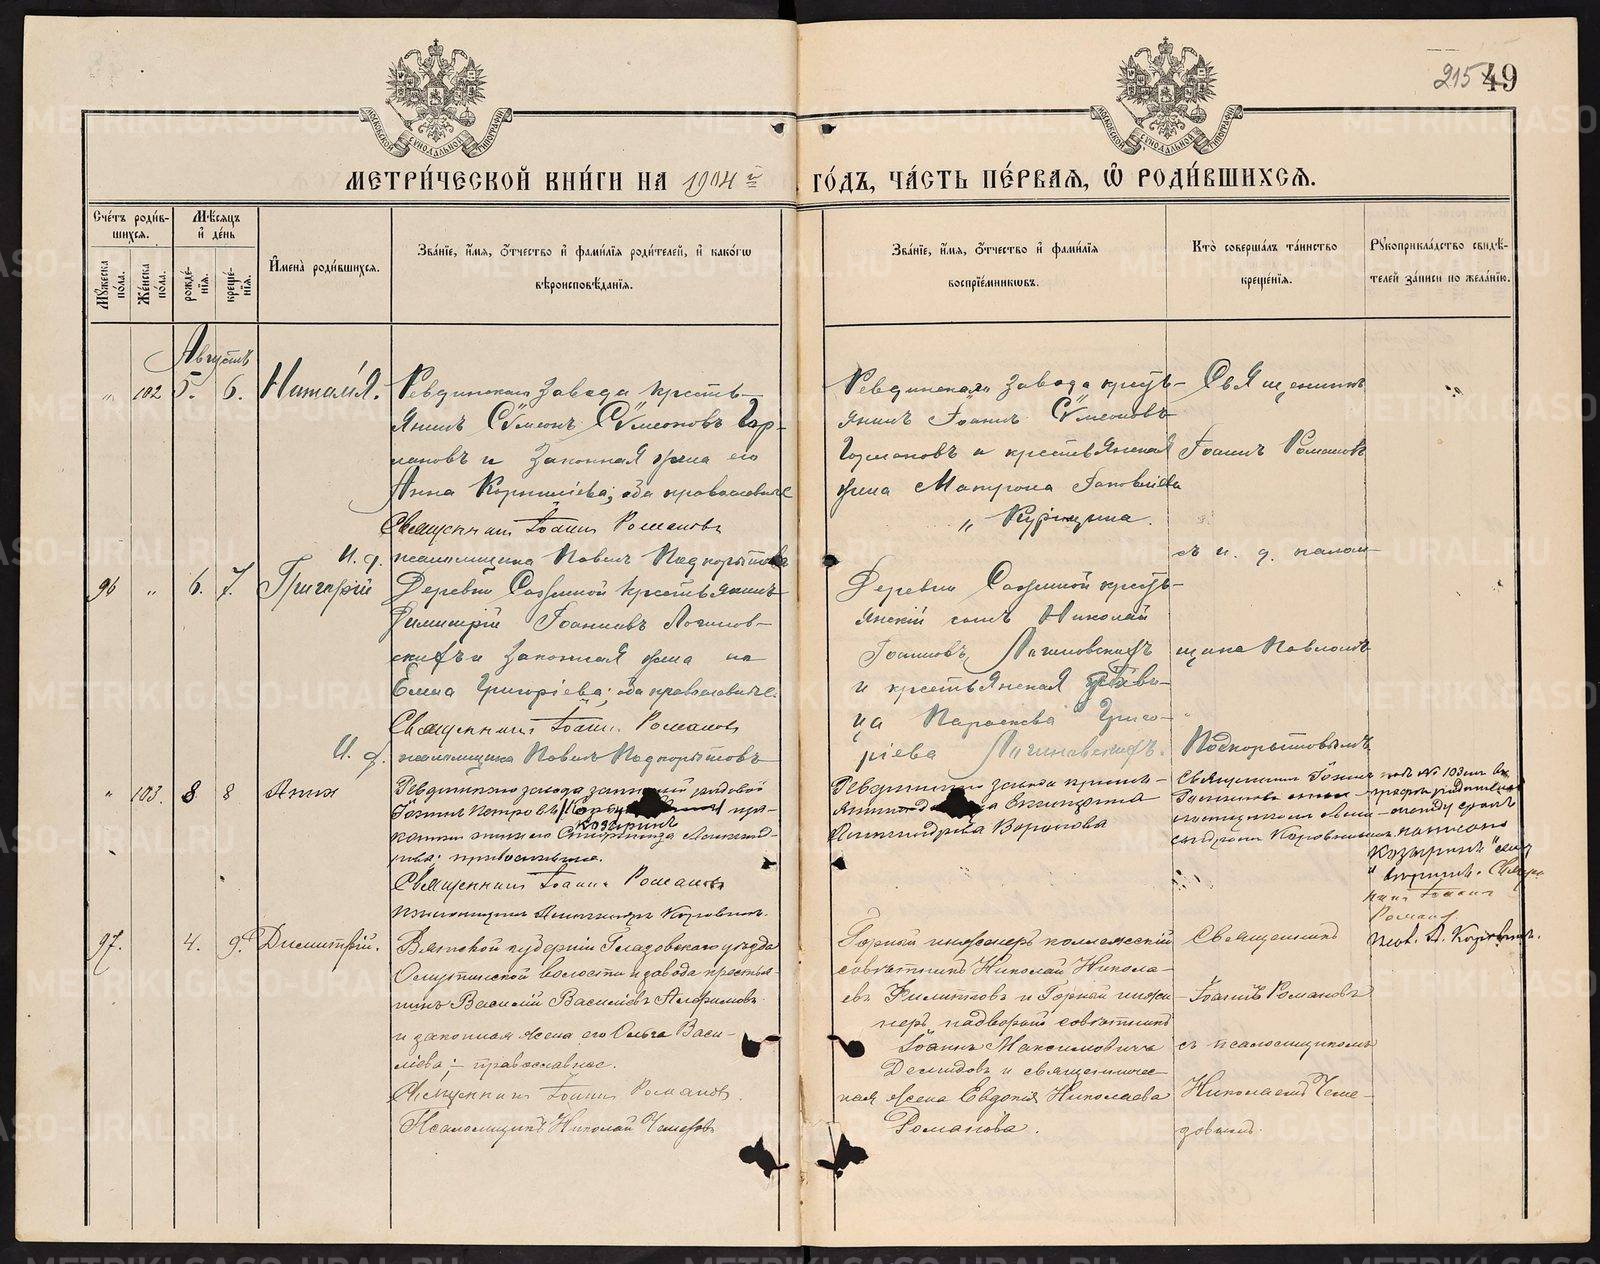 215 49
МЕТРИ́ЧЕСКОЙ КНИ́ГИ НА 1904 й
ГО́ДЪ, ЧА́СТЬ ПЕ́РВАЯ, Ѡ РОДИ́ВШИХСЯ.
Сче́тъ роди́в-
шихся.
Мѣсяцъ
и де́нь
Му́жеска по́ла.
Же́нска по́ла.
рожде́-
нія.
креще́-
нія.
Имена̀ роди́вшихся.
Зва́ніе, и́мя, о́тчество и фами́лія роди́телей, и како́гѡ
вѣроисповѣ́данія.
Зва́ніе, и́мя, о́тчество и фами́лія
воспріе́мникѡвъ.
Кто̀ соверша́лъ та́инство
креще́нія.
Рукоприкла́дство свидѣ́-
телей за́писи по жела́нію.
Августъ
" 102 5. 6. Наталія.
Ревдинскаго завода кресть-
янинъ Сѵмеонъ Сѵмеоновъ Гор-
мановъ и законная жена его
Анна Корнилiева; оба православные
Священникъ Іоаннъ Романовъ
И. д. псаломщика Павелъ Подкорытовъ
Ревдинскаго завода кресть-
янинъ Іоаннъ Сѵмеоновъ
и крестьянская
жена Матрона Іаковлева
" Курицына.
Священникъ
Іоаннъ Романовъ
съ и. д. псалом-
щика Павломъ
Подкорытовымъ
96 " 6. 7. Григорій
Деревни Сажиной крестьянинъ
Димитрій Іоанновъ Логинов-
скихъ и законная жена его
Елена Григоріева; оба православные.
Священникъ Іоаннъ Романовъ
И. д. псаломщика Павелъ Подкорытовъ
Деревни Сажиной кресть-
янскій сынъ Николай
Іоанновъ Логиновскихъ
и крестьянская дѣви-
ца Параскева Григо-
ріева Логиновскихъ.
" 103. 8 8 Анна
Ревдинскаго завода запасный рядовой
Іоаннъ Петровъ
Козыринъ
законная жена его Александ-
рова; православные.
Священникъ Іоаннъ Романовъ
Псаломщикъ Александръ Коровинъ.
Ревдинскаго завода
Екатерина
Александрова Воронова
Священникъ Іоаннъ
Романовъ
псаломщикомъ Алек-
сандромъ Коровинымъ
подъ № 103 въ
графѣ родители
между строкъ
написано
Козыринъ
вѣрить. Священ-
никъ Іоаннъ
Романовъ
Псал. А. Коровинъ.
97. 4. 9. Димитрій.
Вятской губерніи Глазовскаго уѣзда
Омутнинской волости и завода крестья-
нинъ Василій Василіевъ Анфимовъ
и законная жена его Ольга Васи-
ліева; православные.
Священникъ Іоаннъ Романовъ.
Псаломщикъ Николай Чемезовъ
Горный инженеръ коллежскій
совѣтникъ Николай Никола-
евъ Филипповъ и Горный инже-
неръ надворный совѣтникъ
Іоаннъ Максимовичъ
Демидовъ и священничес-
кая жена Евдокія Николаева
Романова.
Священникъ
Іоаннъ Романовъ
съ псаломщикомъ
Николаемъ Чеме-
зовымъ.